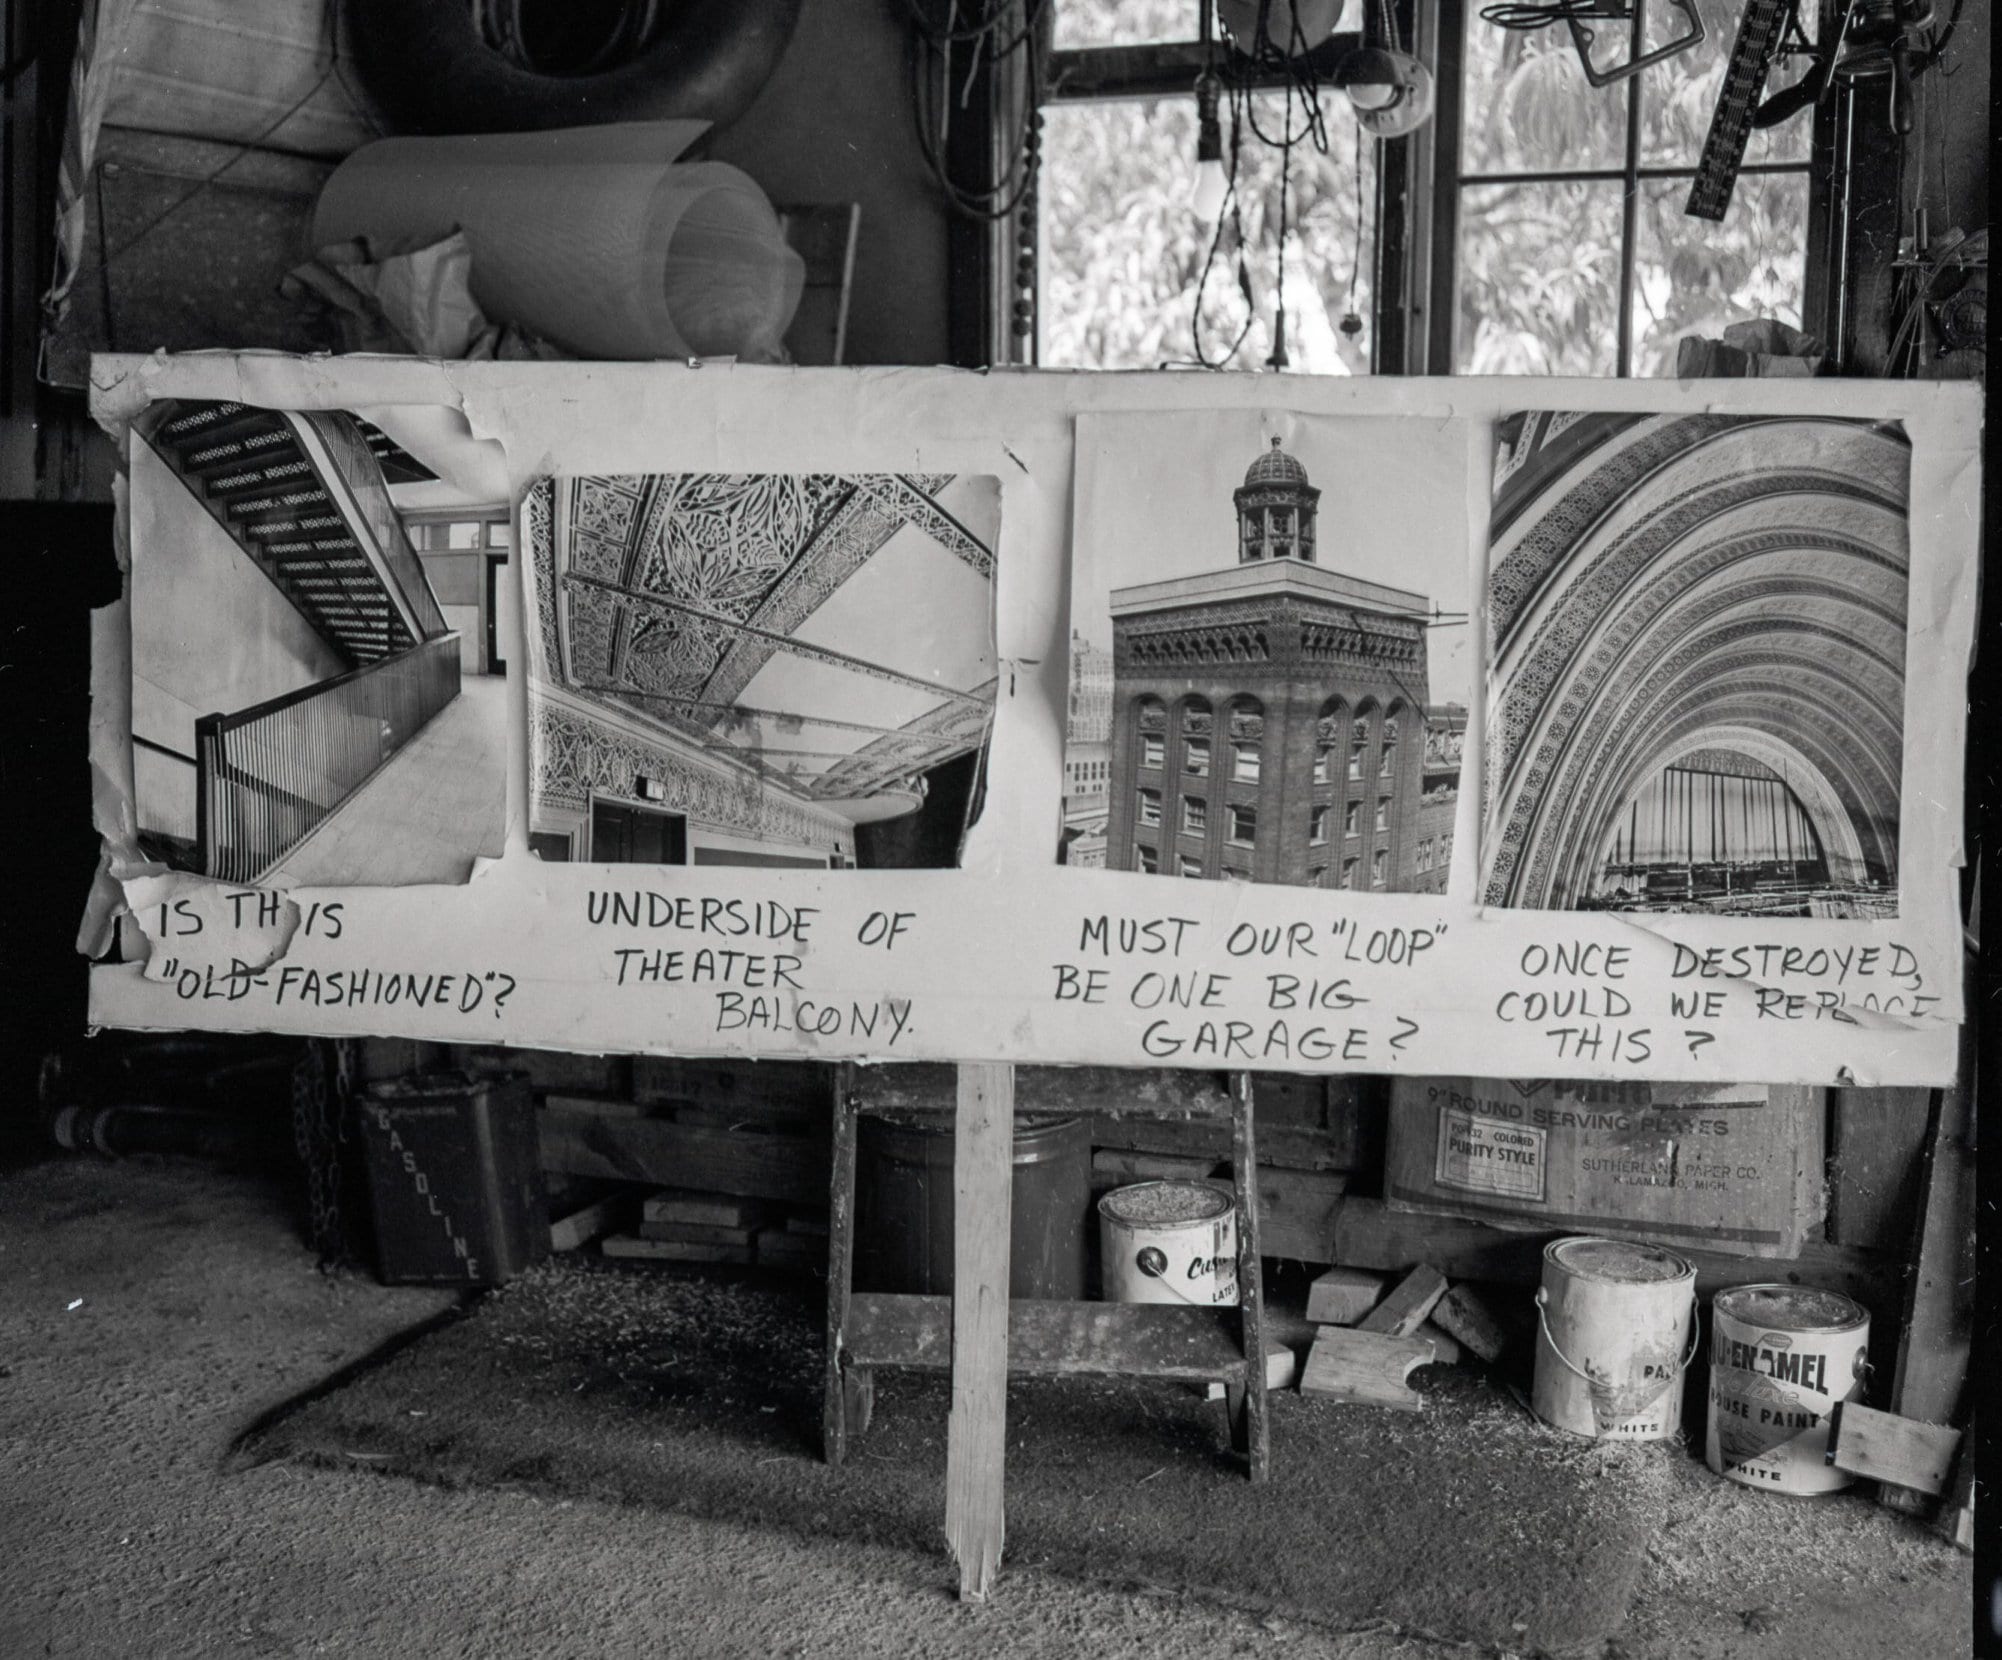 IS THIS
"OLD-FASHIONED"?
UNDERSIDE OF
THEATER
BALCONY.
MUST OUR "LOOP"
BE ONE BIG
GARAGE?
ONCE DESTROYED,
COULD WE REPLACE
THIS?
GASOLINE
9" ROUND SERVING PLATES
COLORED
PURITY STYLE
SUTHERLAND PAPER CO.
KALAMAZOO, MICH.
WHITE
ENAMEL
HOUSE PAINT
WHITE